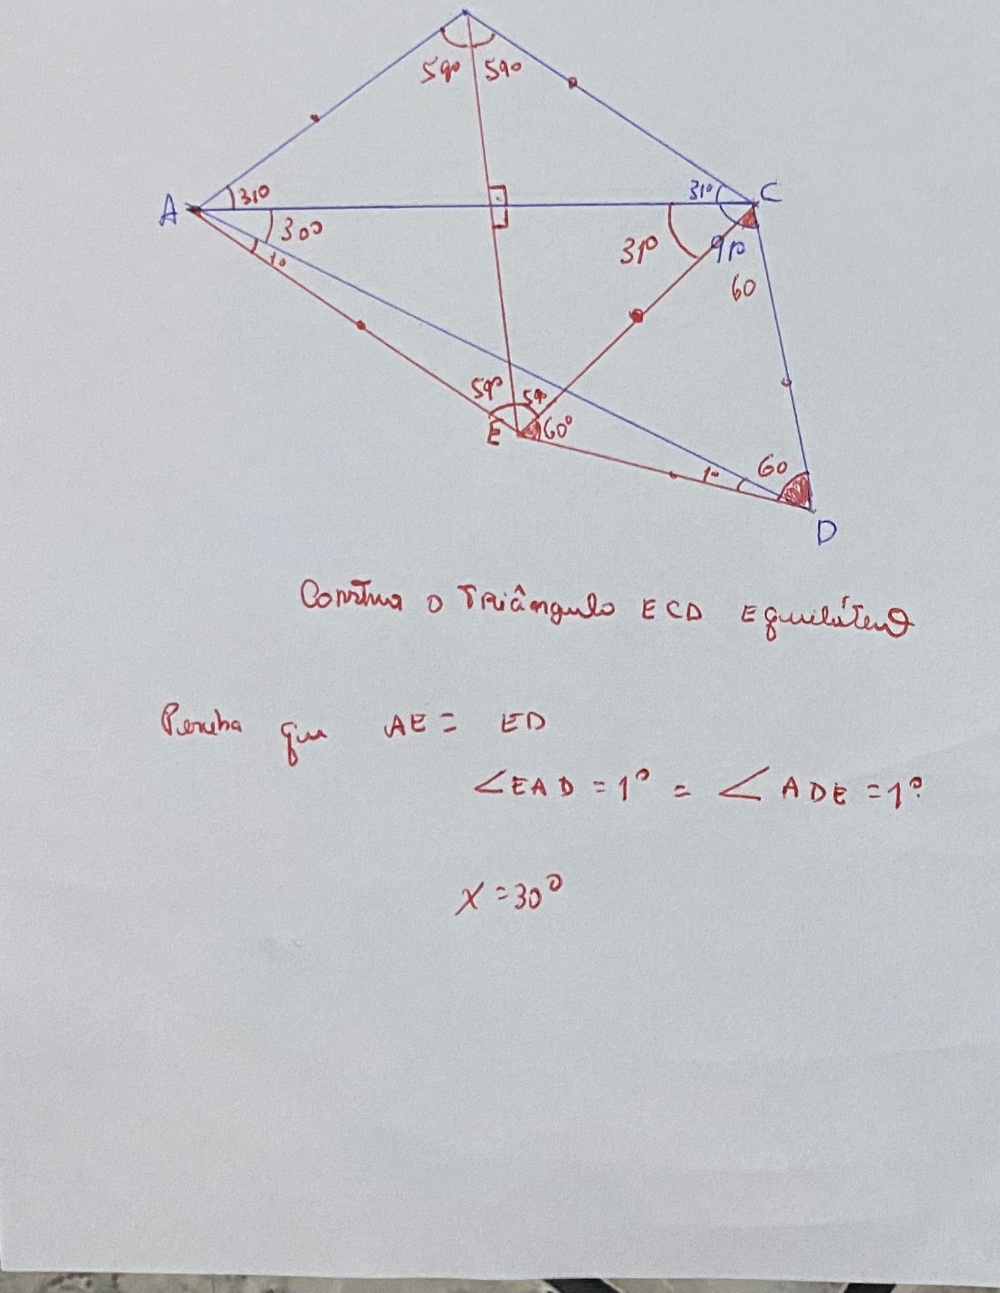 59° 59°
A 31° 31° C
30° 31° 91°
1° 60
59° 59
E 60° 1° 60
D
Construa o Triângulo ECD Equilátero
Perceba que AE = ED
∠EAD = 1° = ∠ADE = 1°
X = 30°